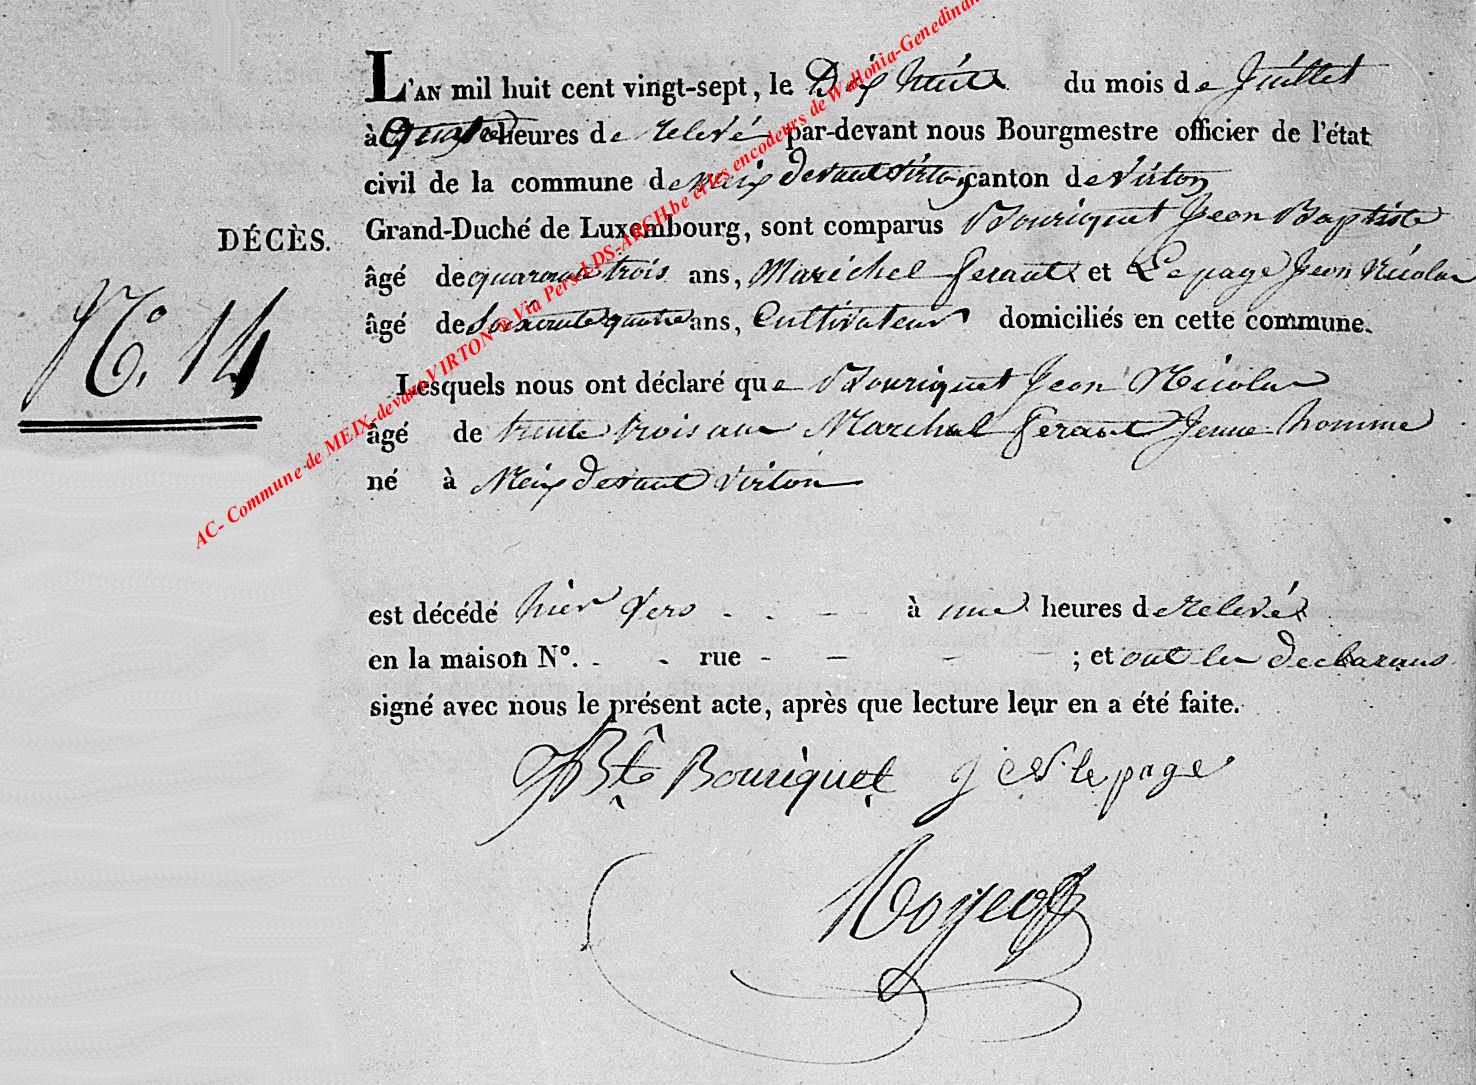 L'AN mil huit cent vingt-sept, le Dix huit du mois de Juillet
à heures de relevé par-devant nous Bourgmestre officier de l'état
civil de la commune de Meix devant Virton canton de Virton
DÉCÈS.
Grand-Duché de Luxembourg, sont comparus Bouriquet Jean Baptiste
âgé de quarante trois ans, Maréchel feraut et Lepage Jean Nicolas
âgé de Soixante quatre ans, Cultivateur domiciliés en cette commune.
N.° 14
Lesquels nous ont déclaré que Bouriquet Jean Nicolas
âgé de trente trois ans Marechal feraut Jeune homme
né à Meix devant Virton
est décédé hier vers - - - à une heures de relevée
en la maison N°. - - rue - - - - ; et ont les declarans
signé avec nous le présent acte, après que lecture leur en a été faite.
JBte Bouriquet j n lepage
AC- Commune de MEIX-devant-VIRTON ® Via Pers-LDS-ARCH.be et les encodeurs de Wallonia-Genedinan